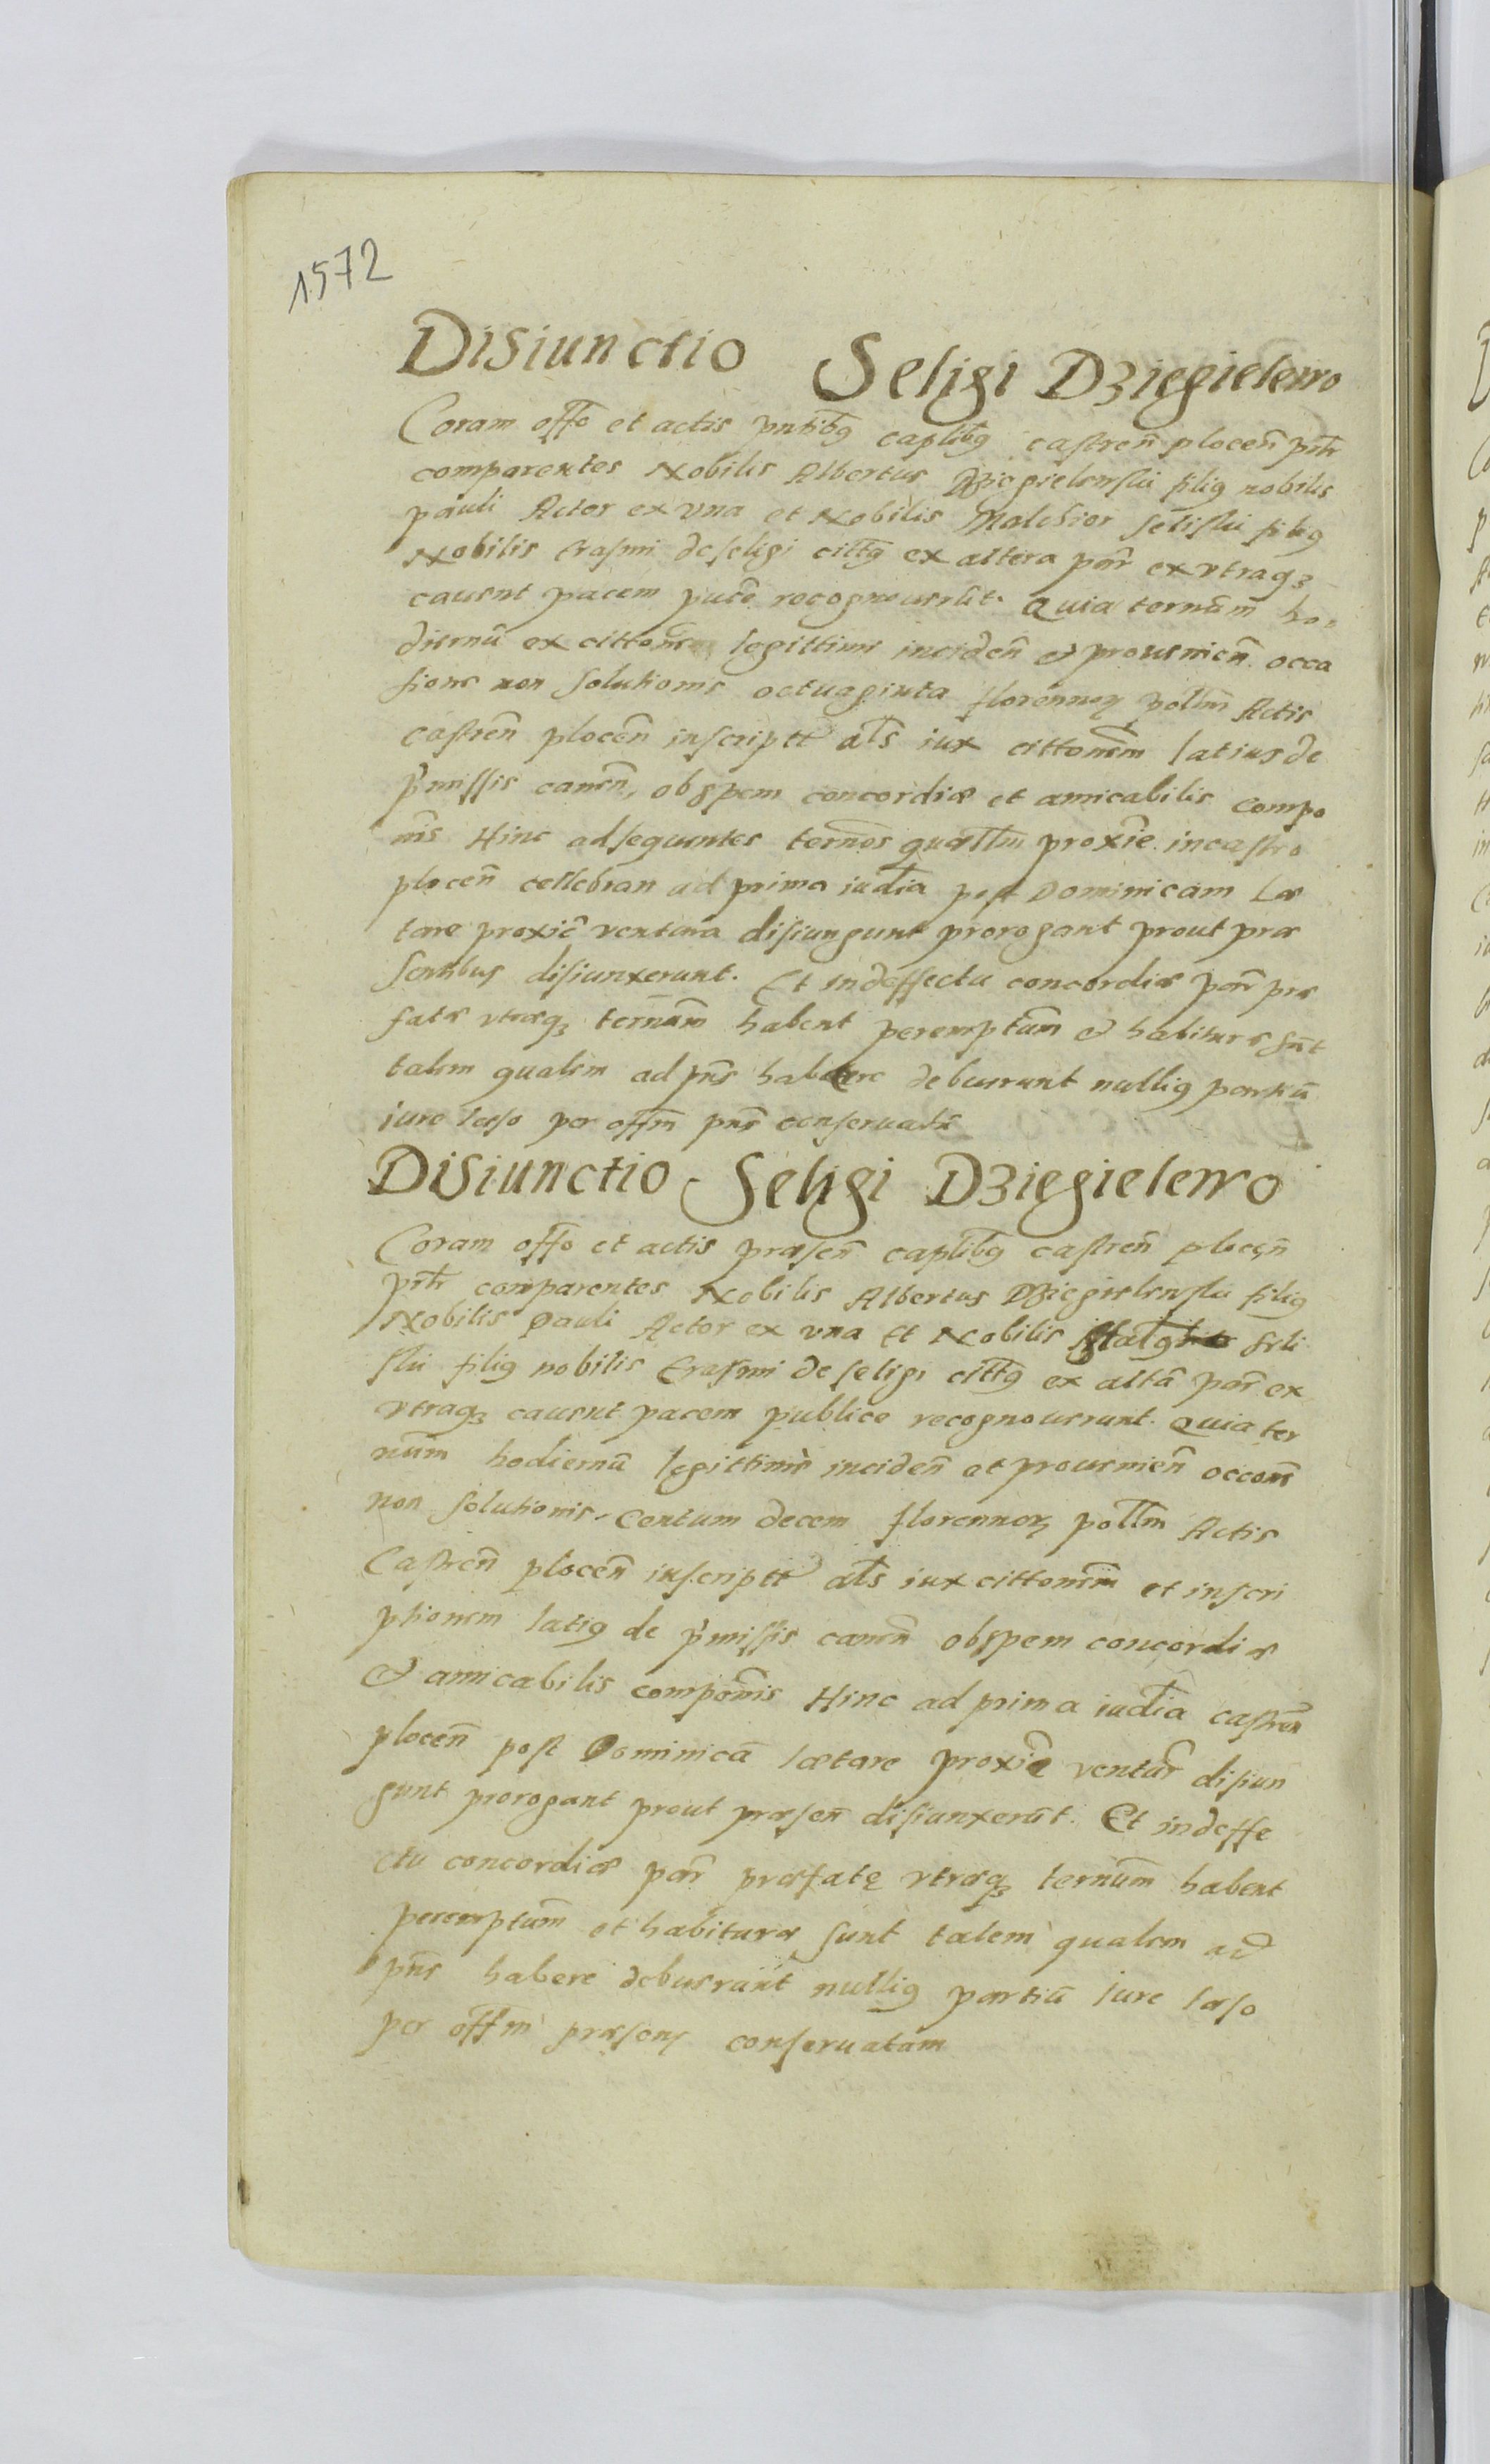 1572
Disiunctio Seligi Dziegielewo
Coram offo et actis pntibꝯ caplibꝯ castren̄ plocen̄ pn̄tr
comparentes Nobilis Albertus Dziegielewski filiꝯ nobilis
pauli Actor ex vna et Nobilis Malchior seliski filiꝯ
Nobilis Erasmi de seligi cittꝯ ex altera par̄ ex vtraqꝫ
cauent pacem puce recognouerūt. Quia ternūm ho-
diernū ex cittone legittime inciden̄ & prouenien̄ occa
sione non solutionis octuaginta florennoꝝ pollm̄ Actis
castren̄ plocen̄ inscriptt als̄ iux cittonem̄ latius de
p̄missis canen̄, ob spem concordiæ et amicabilis compo
nis̄ Hinc ad sequentes ternos̄ quærllm̄ proxīe in castro
plocen̄ cellebran ad prima iud̄ia post Dominicam Læ
tare proxīe ventura disiungunt prorogant prout præ
sentibus disiunxerunt. Et in deffectu concordiæ par̄ præ
fatæ vtræqꝫ ternūm habent peremptūm & habituræ sūt
talem qualem ad pn̄s habere debuerunt nulliꝯ partiū
iure læso per offm̄ pn̄s conseruatū
Disiunctio Seligi Dziegielewo
Coram offo et actis præsen̄ caplibꝯ castren̄ plocen̄
pn̄tr comparentes Nobilis Albertus Dziegielewski filiꝯ
Nobilis Pauli Actor ex vna Et Nobilis seli
ski filiꝯ nobilis Erasmi de seligi cittꝯ ex altā par̄ ex
vtraqꝫ cauent pacem publice recognouerunt. Quia ter
nūm hodiernū legittimè inciden̄ et prouenien̄ occone
non solutionis. Centum decem florennoꝝ pollm̄ Actis
Castren̄ plocen̄ inscriptt als̄ iux cittonem̄ et inscri
ptionem latiꝯ de p̄missis canen̄ ob spem concordiæ
& amicabilis componis̄ Hinc ad prima iud̄ia castren̄
plocen̄ post Dominicā lætare proxīe ventur̄ disiun
gunt prorogant prout præsen̄ disiunxerūt. Et in deffe
ctu concordiæ par̄ præfatę vtræqꝫ ternūm habent
peremptūm et habituræ sunt talem qualem ad
pn̄s habere debuerant nulliꝯ partiū iure læso
per offm̄ præsens conseruatam